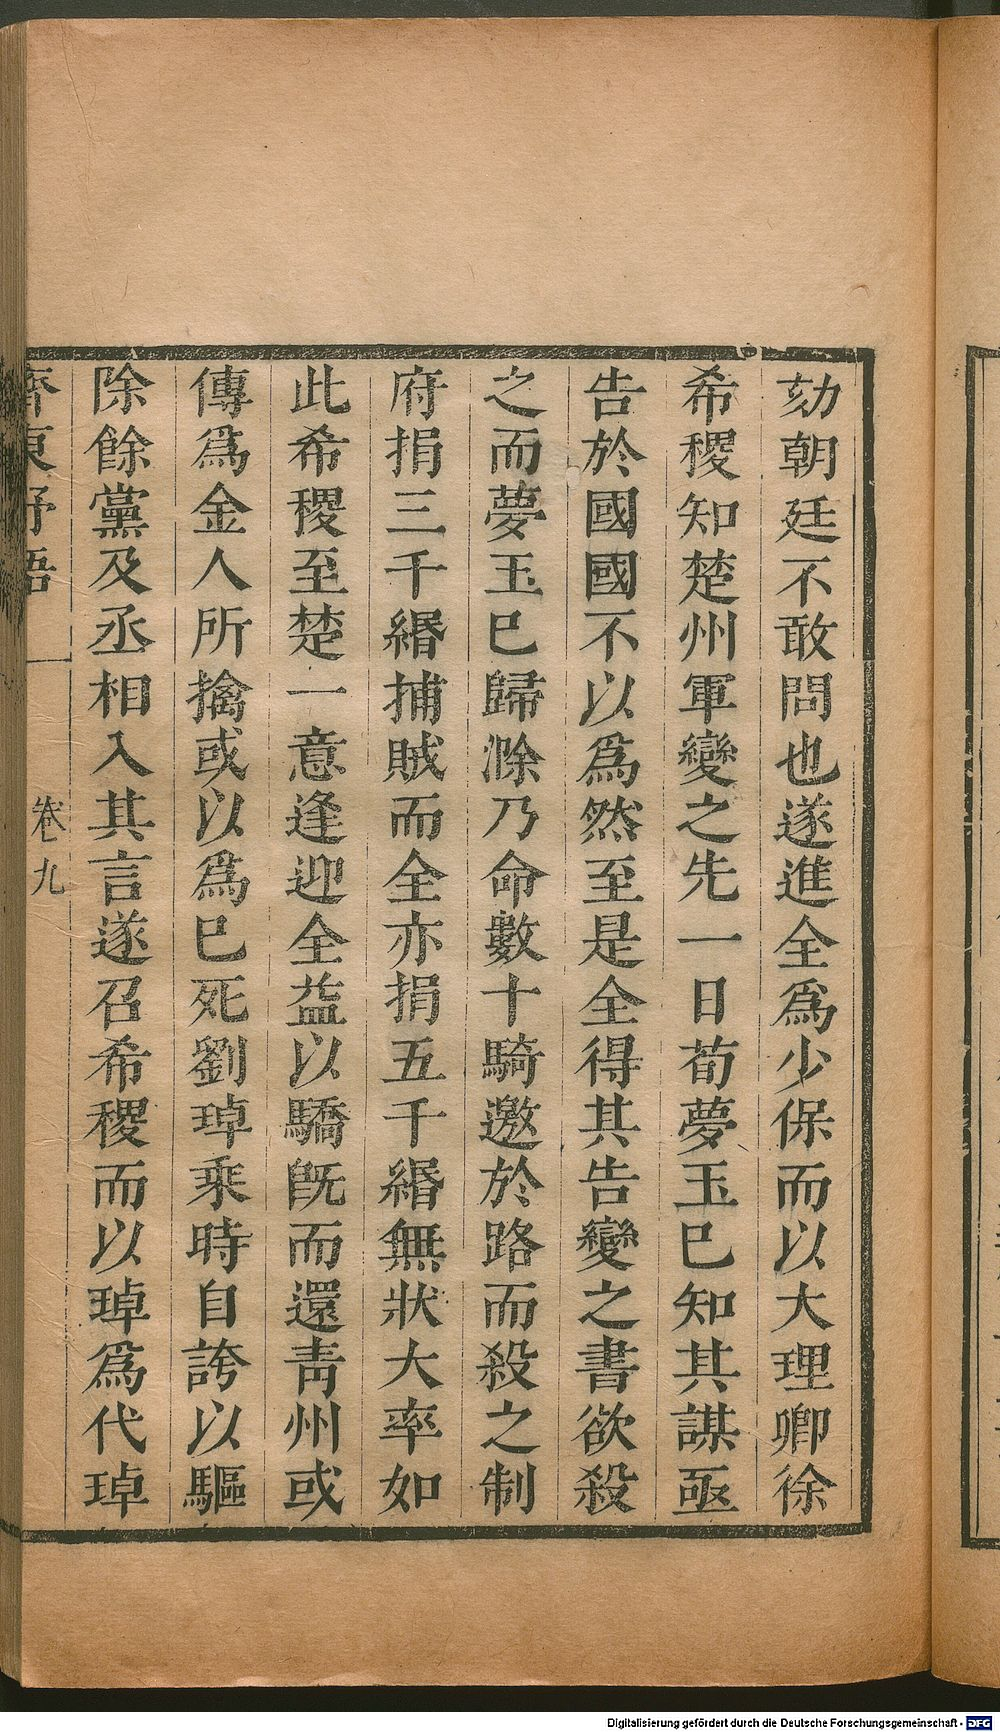 劾朝廷不敢問也遂進全爲少保而以大理卿徐
希稷知楚州軍變之先一日荀夢玉已知其謀亟
告於國國不以爲然至是全得其告變之書欲殺
之而夢玉已歸滁乃命數十騎邀於路而殺之制
府捐三千緡捕賊而全亦捐五千緡無狀大率如
此希稷至楚一意逢迎全益以驕旣而還靑州或
傳爲金人所擒或以爲已死劉琸乘時自誇以驅
除餘黨及丞相入其言遂召希稷而以琸爲代琸
齊東野語
卷九
Digitalisierung gefördert durch die Deutsche Forschungsgemeinschaft - DFG